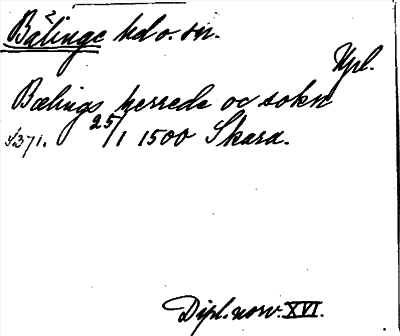 Bälinge hd o. sn.
Upl.
Bælings herrede oc sokn
s. 371. 25/1 1500 Skara.
Dipl. norv. XVI.